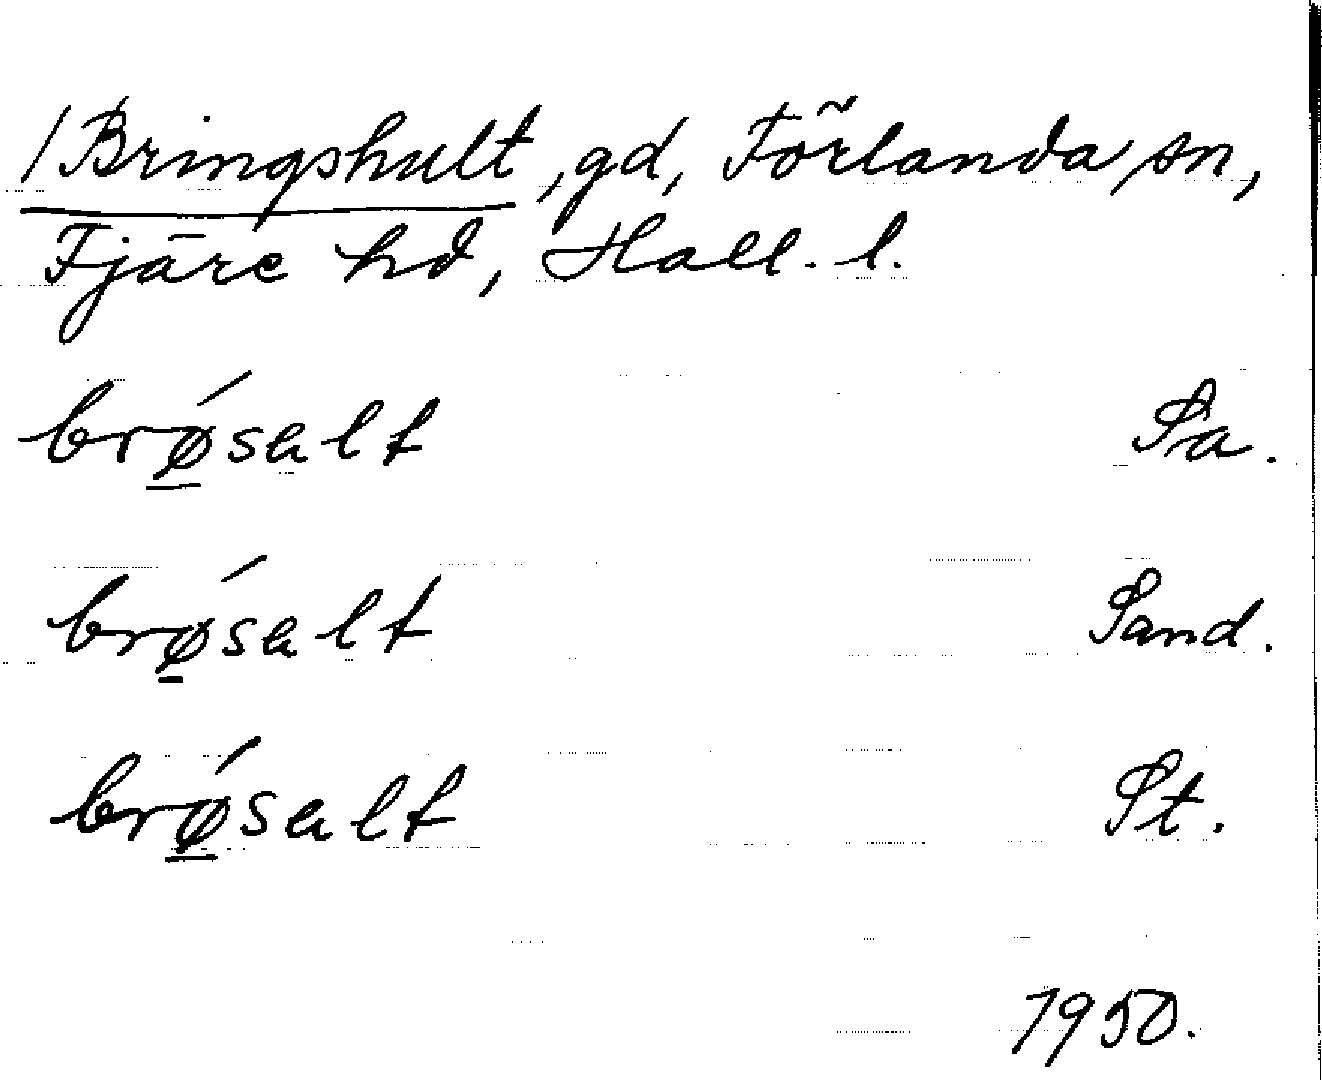 /Bringshult, gd, Förlanda sn,
Fjäre hd, Hall. l.
brǿsalt Sa.
brǿsalt Sand.
brǿsalt St.
1950.